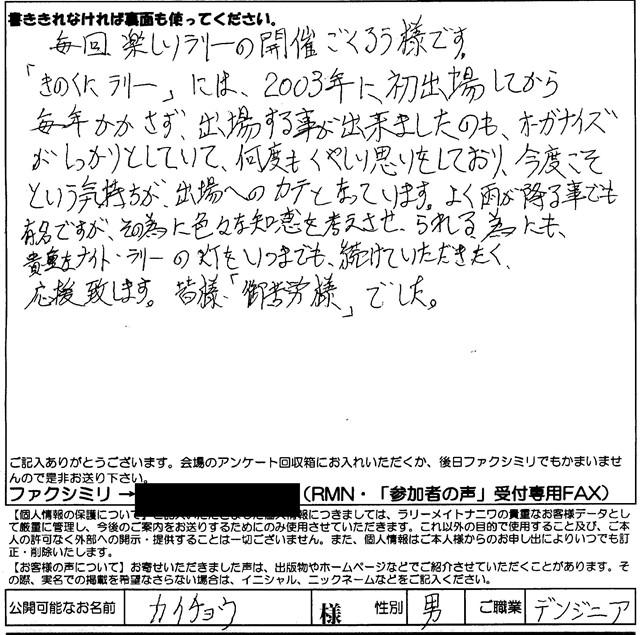 書ききれなければ裏面も使ってください。
毎回楽しいラリーの開催ごくろう様です。
「きのくにラリー」には、2003年に初出場してから
毎年かかさず、出場する事が出来ましたのも、オーガナイズ
がしっかりとしていて、何度もくやしい思いをしており、今度こそ
という気持ちが、出場へのカテとなっています。よく雨が降る事でも
有名ですが、その為に色々な知恵を考えさせられる為にも、
貴重なナイト・ラリーの灯をいつまでも、続けていただきたく、
応援致します。皆様「御苦労様」でした。
ご記入ありがとうございます。会場のアンケート回収箱にお入れいただくか、後日ファクシミリでもかまいませ
んので是非お送り下さい。
ファクシミリ→ (RMN・「参加者の声」受付専用FAX)
【個人情報の保護について】ご記入いただきました個人情報につきましては、ラリーメイトナニワの貴重なお客様データとし
て厳重に管理し、今後のご案内をお送りするためにのみ使用させていただきます。これ以外の目的で使用すること及び、ご本
人の許可なく外部への開示・提供することは一切ございません。また、個人情報はご本人様からのお申し出によりいつでも訂
正・削除いたします。
【お客様の声について】お寄せいただきました声は、出版物やホームページなどでご紹介させていただくことがあります。そ
の際、実名での掲載を希望なさらない場合は、イニシャル、ニックネームなどをご記入ください。
公開可能なお名前 カイチョウ 様 性別 男 ご職業 デンジニア